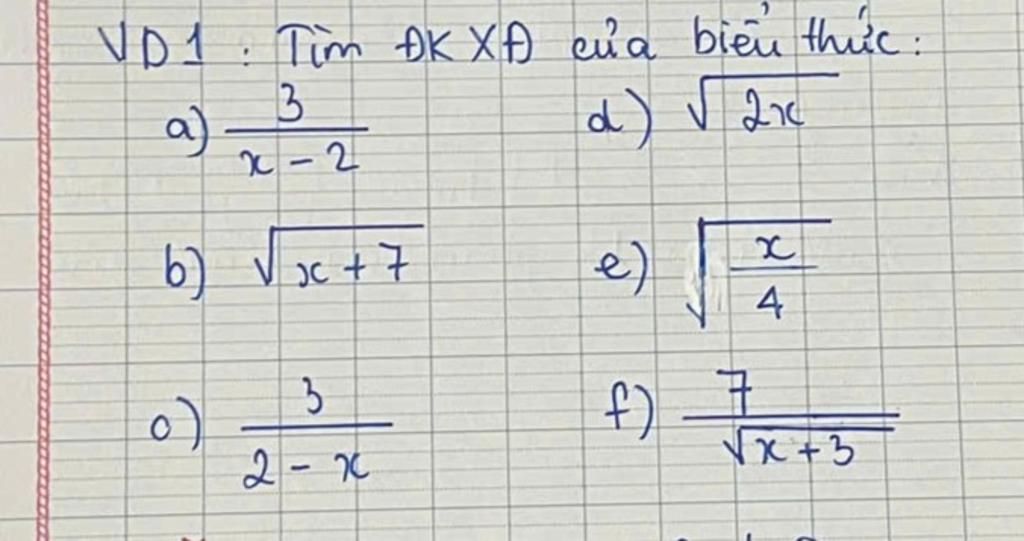 VD1 : Tìm ĐKXĐ của biểu thức:
a) 3/(x - 2)
d) √(2x)
b) √(x + 7)
e) √(x/4)
c) 3/(2 - x)
f) 7/√(x + 3)